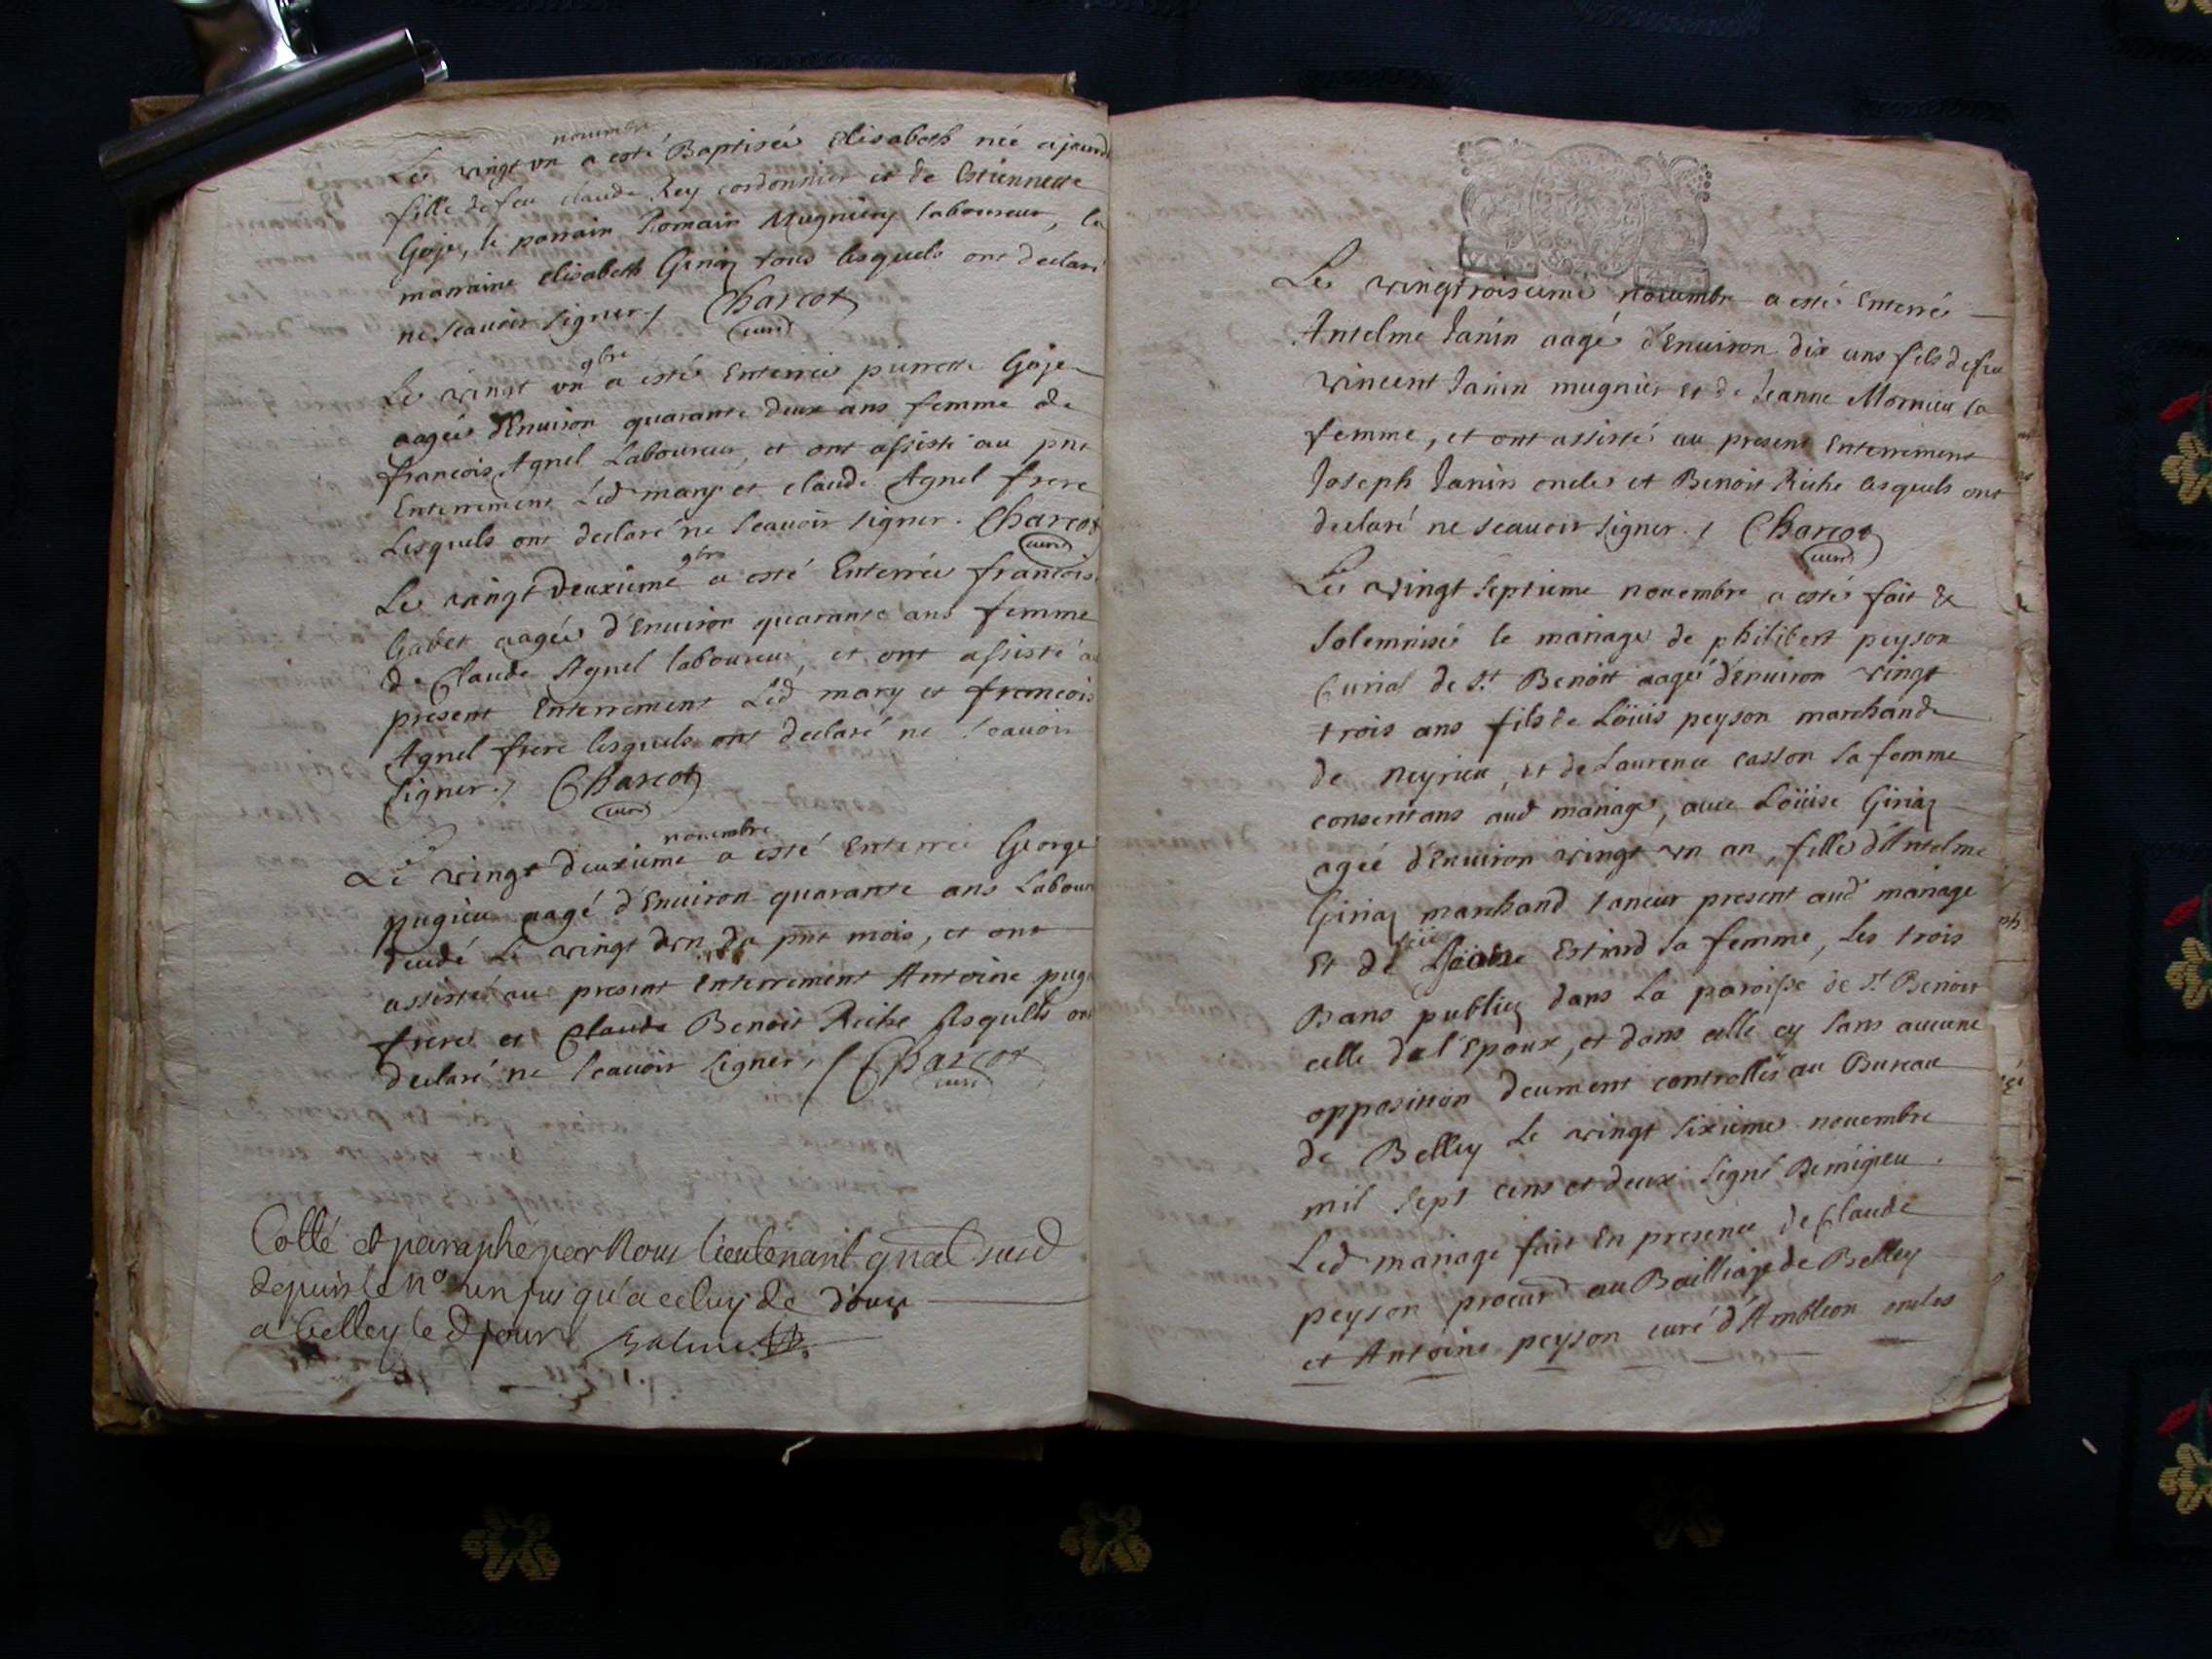 novembre
Le vingt un a esté Baptisée Elisabeth née ajourd
fille de feu claude Rey cordonnier et de Estiennette
Goje, le parrain Romain Mugniery laboureur, la
marraine elisabeth Giriaz tous lesquels ont declaré
ne scauoir signer / Charcot
curé
9bre
Le vingt un a esté Enterrée pierrette Goje
aagée d'Enuiron quarante deux ans femme de
francois Agnel Laboureur, et ont assisté au pnt
Enterrement Led mary et claude Agnel frere
Lesquels ont declaré ne scauoir signer. Charcot
curé
9bre
Le vingt deuxieme a esté Enterrée francoise
Gabet aagée d'Enuiron quarante ans femme
de Claude Agnel laboureur, et ont assisté au
present Enterrement Led mary et francois
Agnel frere lesquels ont declaré ne scauoir
signer / Charcot
curé
novembre
Le vingt deuxieme a esté Enterré George
pugieu aagé d'Enuiron quarante ans Labour
decedé Le vingt d'un du pnt mois, et ont
assisté au present enterrement Antoine pug
frere et Claude Benoit Riche lesquells ont
declaré ne scauoir signer / Charcot
curé
Cotté et paraphé par Nous lieutenant gnal susd
depuis le No un jusqu'a celuy de douze
a belley le d jour
Le vingtroisieme nouembre a esté Enterré
Antelme Janin aagé d'Enuiron dix ans fils de feu
vincent Janin mugnier et de Jeanne Mornieu sa
femme, et ont assisté au present Enterrement
Joseph Janin oncle et Benoit Riche lesquels ont
declaré ne scauoir signer. / Charcot
curé
Le vingt septieme nouembre a esté fait &
solemnisé le mariage de philibert peyson
Curial de St Benoit aagé d'enuiron vingt
trois ans fils de Loüis peyson marchand
de neyrieu, et de Laurence casson sa femme
consentans aud mariage, auec Loüise Giriaz
agée d'Enuiron vingt un an, fille d'Antelme
Giriaz marchand taneur present aud mariage
Et de Loüise Estind sa femme, Les trois
Bans publiez dans La paroisse de St Benoit
celle de l'Epoux, et dans celle cy sans aucune
opposition deument controllés au Bureau
de Belley Le vingt sixieme nouembre
mil sept cens et deux signé Demigieu.
Led mariage fait En presence de Claude
peyson procurd au Bailliage de Belley
et Antoine peyson curé d'Ambleon oncles